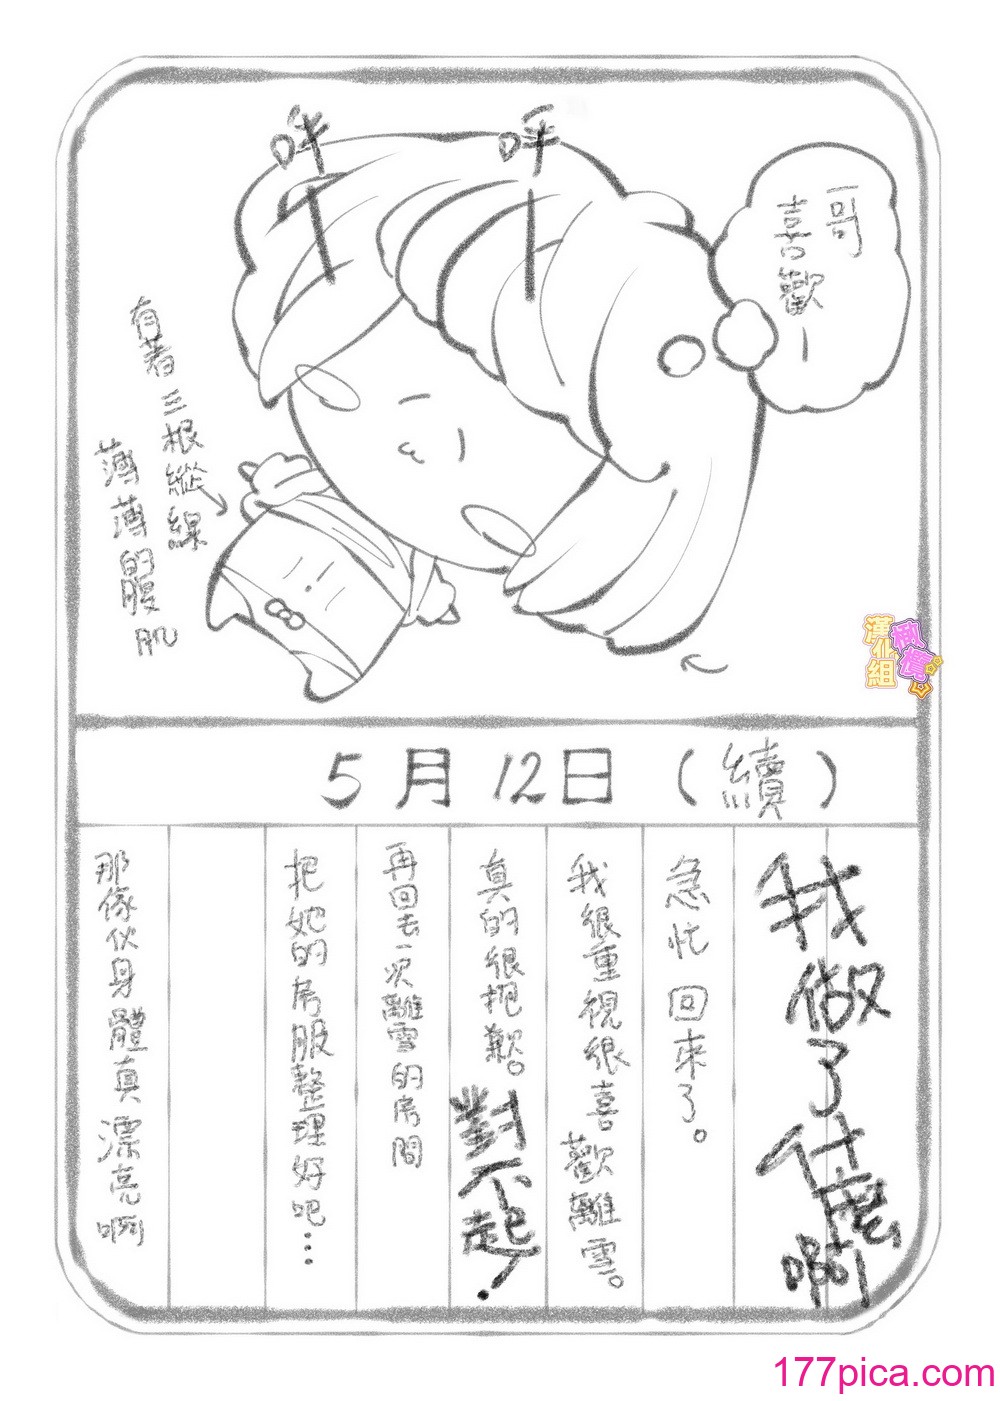 哥
喜歡—
呼—
呼—
有著三根縱線
薄薄的腹肌
漢化組
5月12日（續）
我做了什麼啊
急忙回來了。
我很重視很喜歡離雪。
真的很抱歉。對不起！
再回去一次離雪的房間
把她的房服整理好吧…
那傢伙身體真漂亮啊
177pica.com